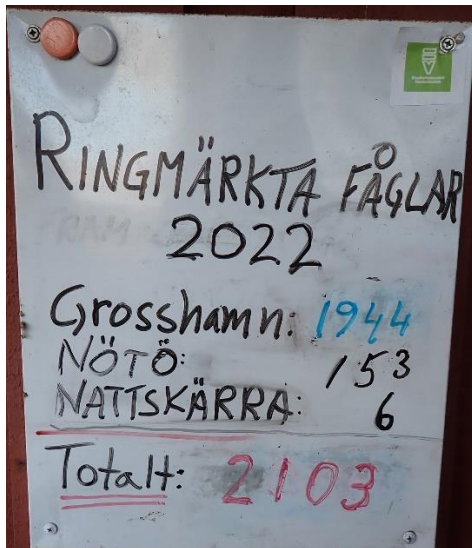 RINGMÄRKTA FÅGLAR
2022
Grosshamn: 1944
NÖTÖ: 153
NATTSKÄRRA: 6
Totalt: 2103